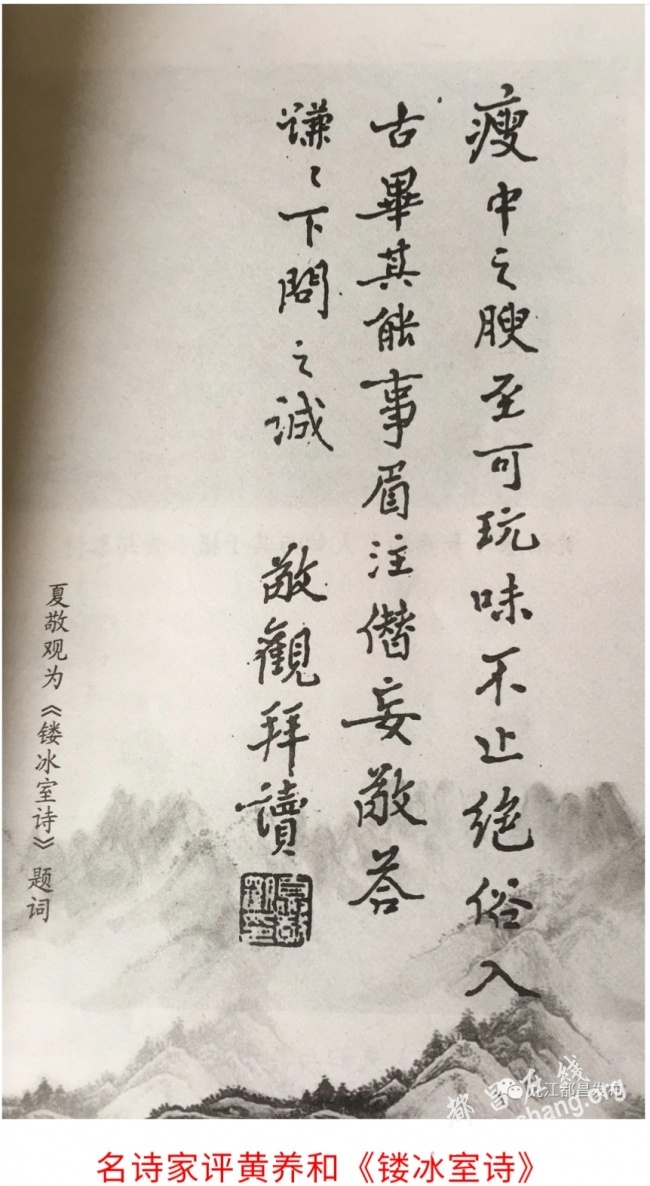 瘦中之腴至可玩味不止绝俗入
古畢其能事眉注僭妄敬荅
謙〻下問之诚
敬觀拜讀
夏敬观为《镂冰室诗》题词
九江都昌发布
都昌在线
名诗家评黄养和《镂冰室诗》